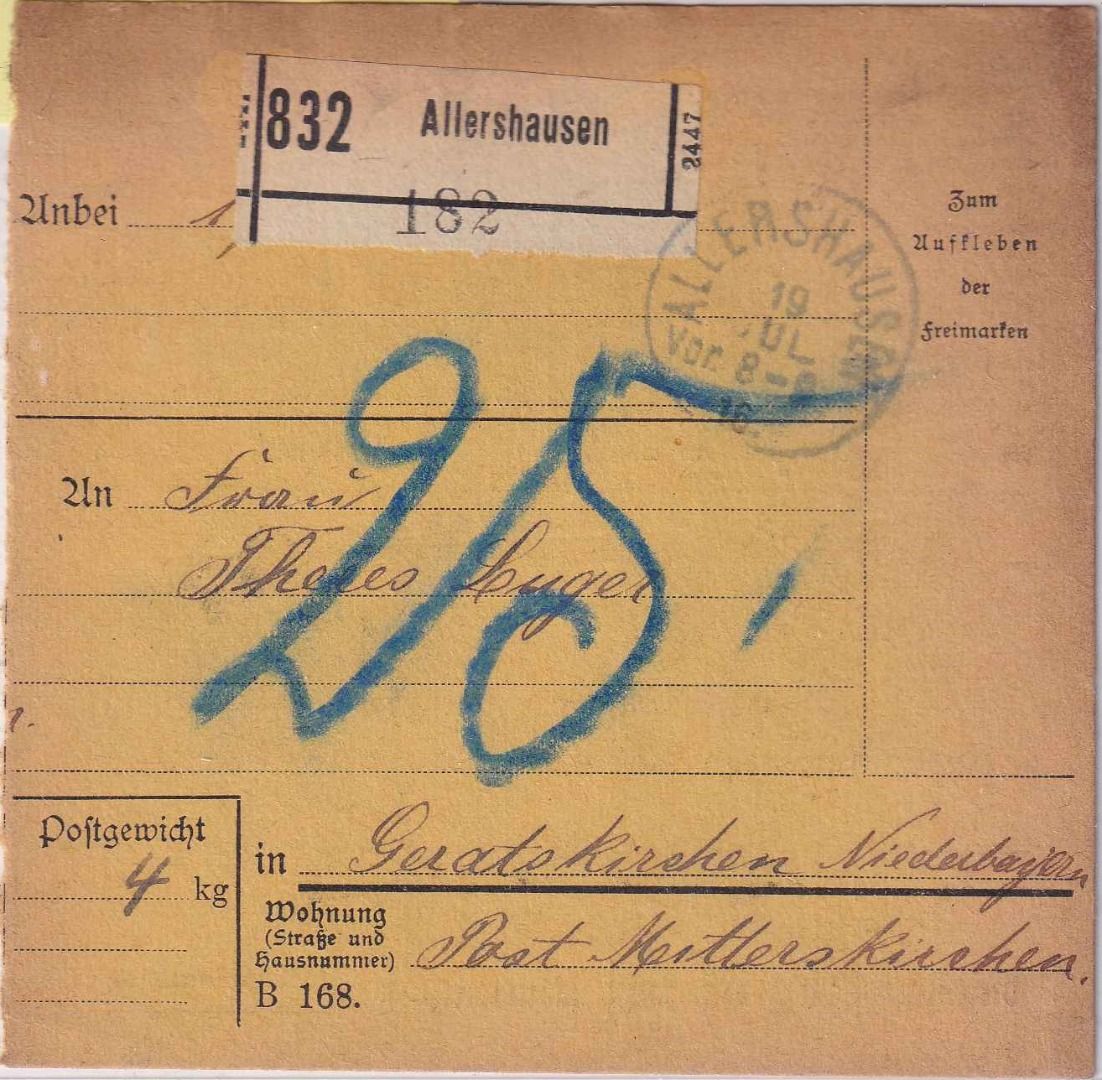 832 Allershausen
2447
182
Anbei 1
ALLERSHAUSEN
19
JUL
Vor. 8-9
16.
Zum
Aufkleben
der
Freimarken
25
An Frau
Theres Luger
Postgewicht
4 kg
in Geratskirchen Niederbayern
Wohnung
(Straße und
Hausnummer)
Post Mitterskirchen.
B 168.